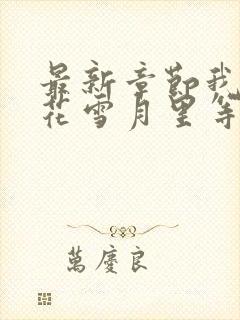 最新章節我
花雪月里等
萬慶良